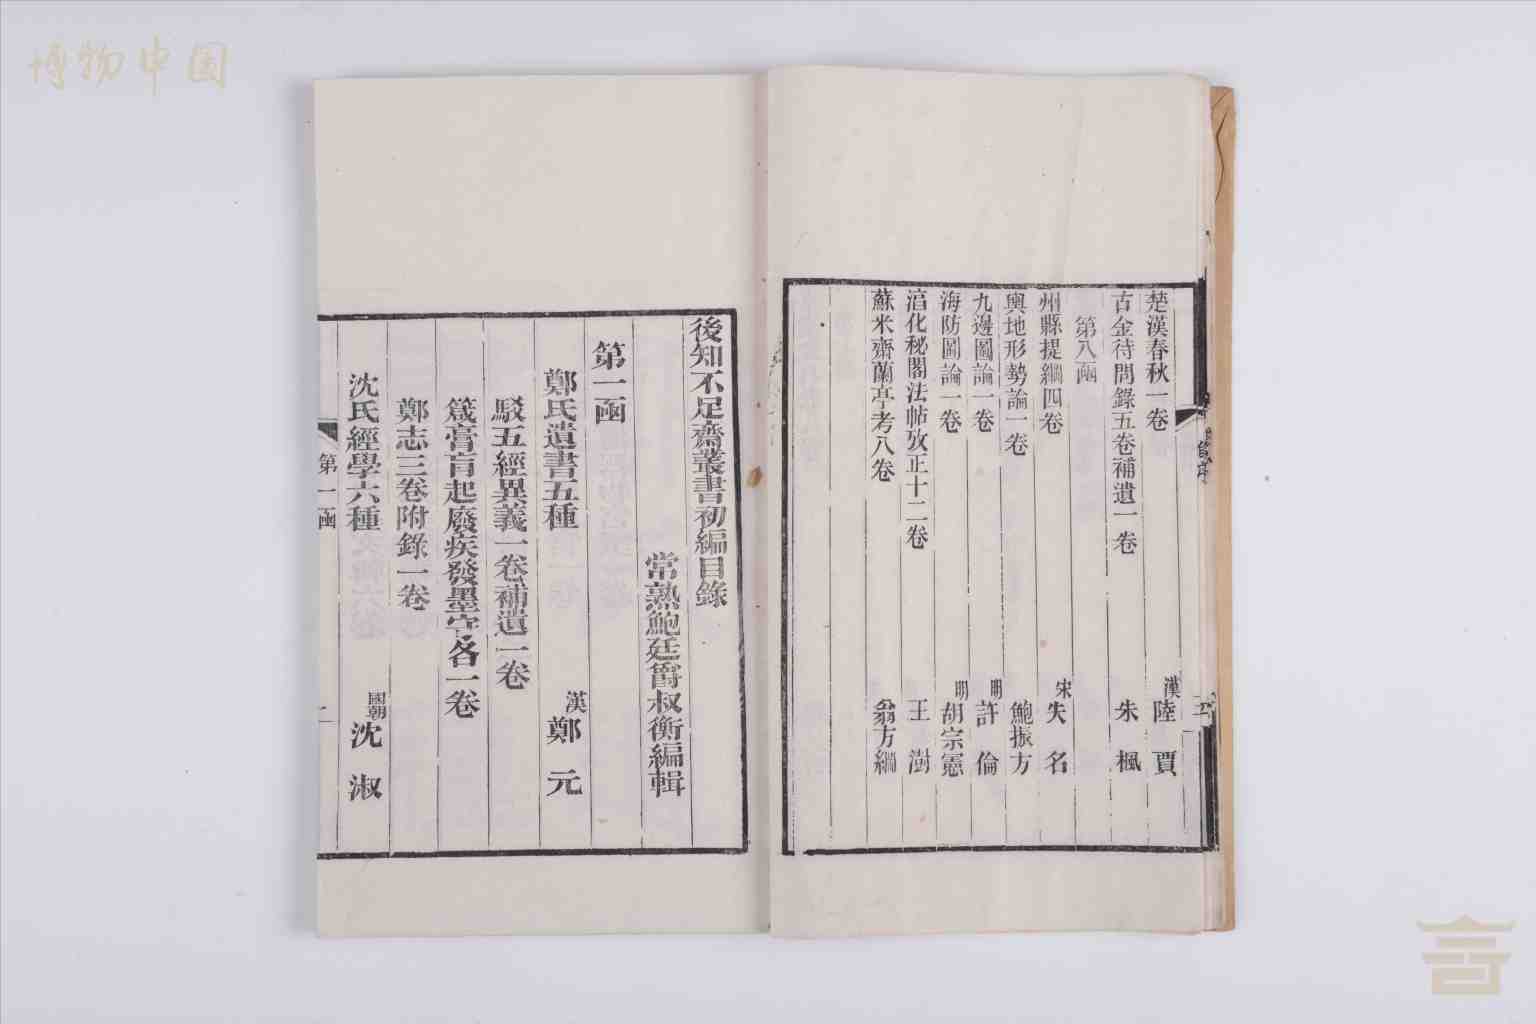 博物中国
楚漢春秋一卷 漢陸賈
古金待問錄五卷補遺一卷 朱楓
第八函
州縣提綱四卷 宋失名
輿地形勢論一卷 鮑振方
九邊圖論一卷 明許倫
海防圖論一卷 明胡宗憲
淳化秘閣法帖攷正十二卷 王澍
蘇米齋蘭亭考八卷 翁方綱
後知不足齋叢書初編目錄
常熟鮑廷爵叔衡編輯
第一函
鄭氏遺書五種 漢鄭元
駁五經異義一卷補遺一卷
箴膏肓起廢疾發墨守各一卷
鄭志三卷附錄一卷
沈氏經學六種 國朝沈淑
第一函